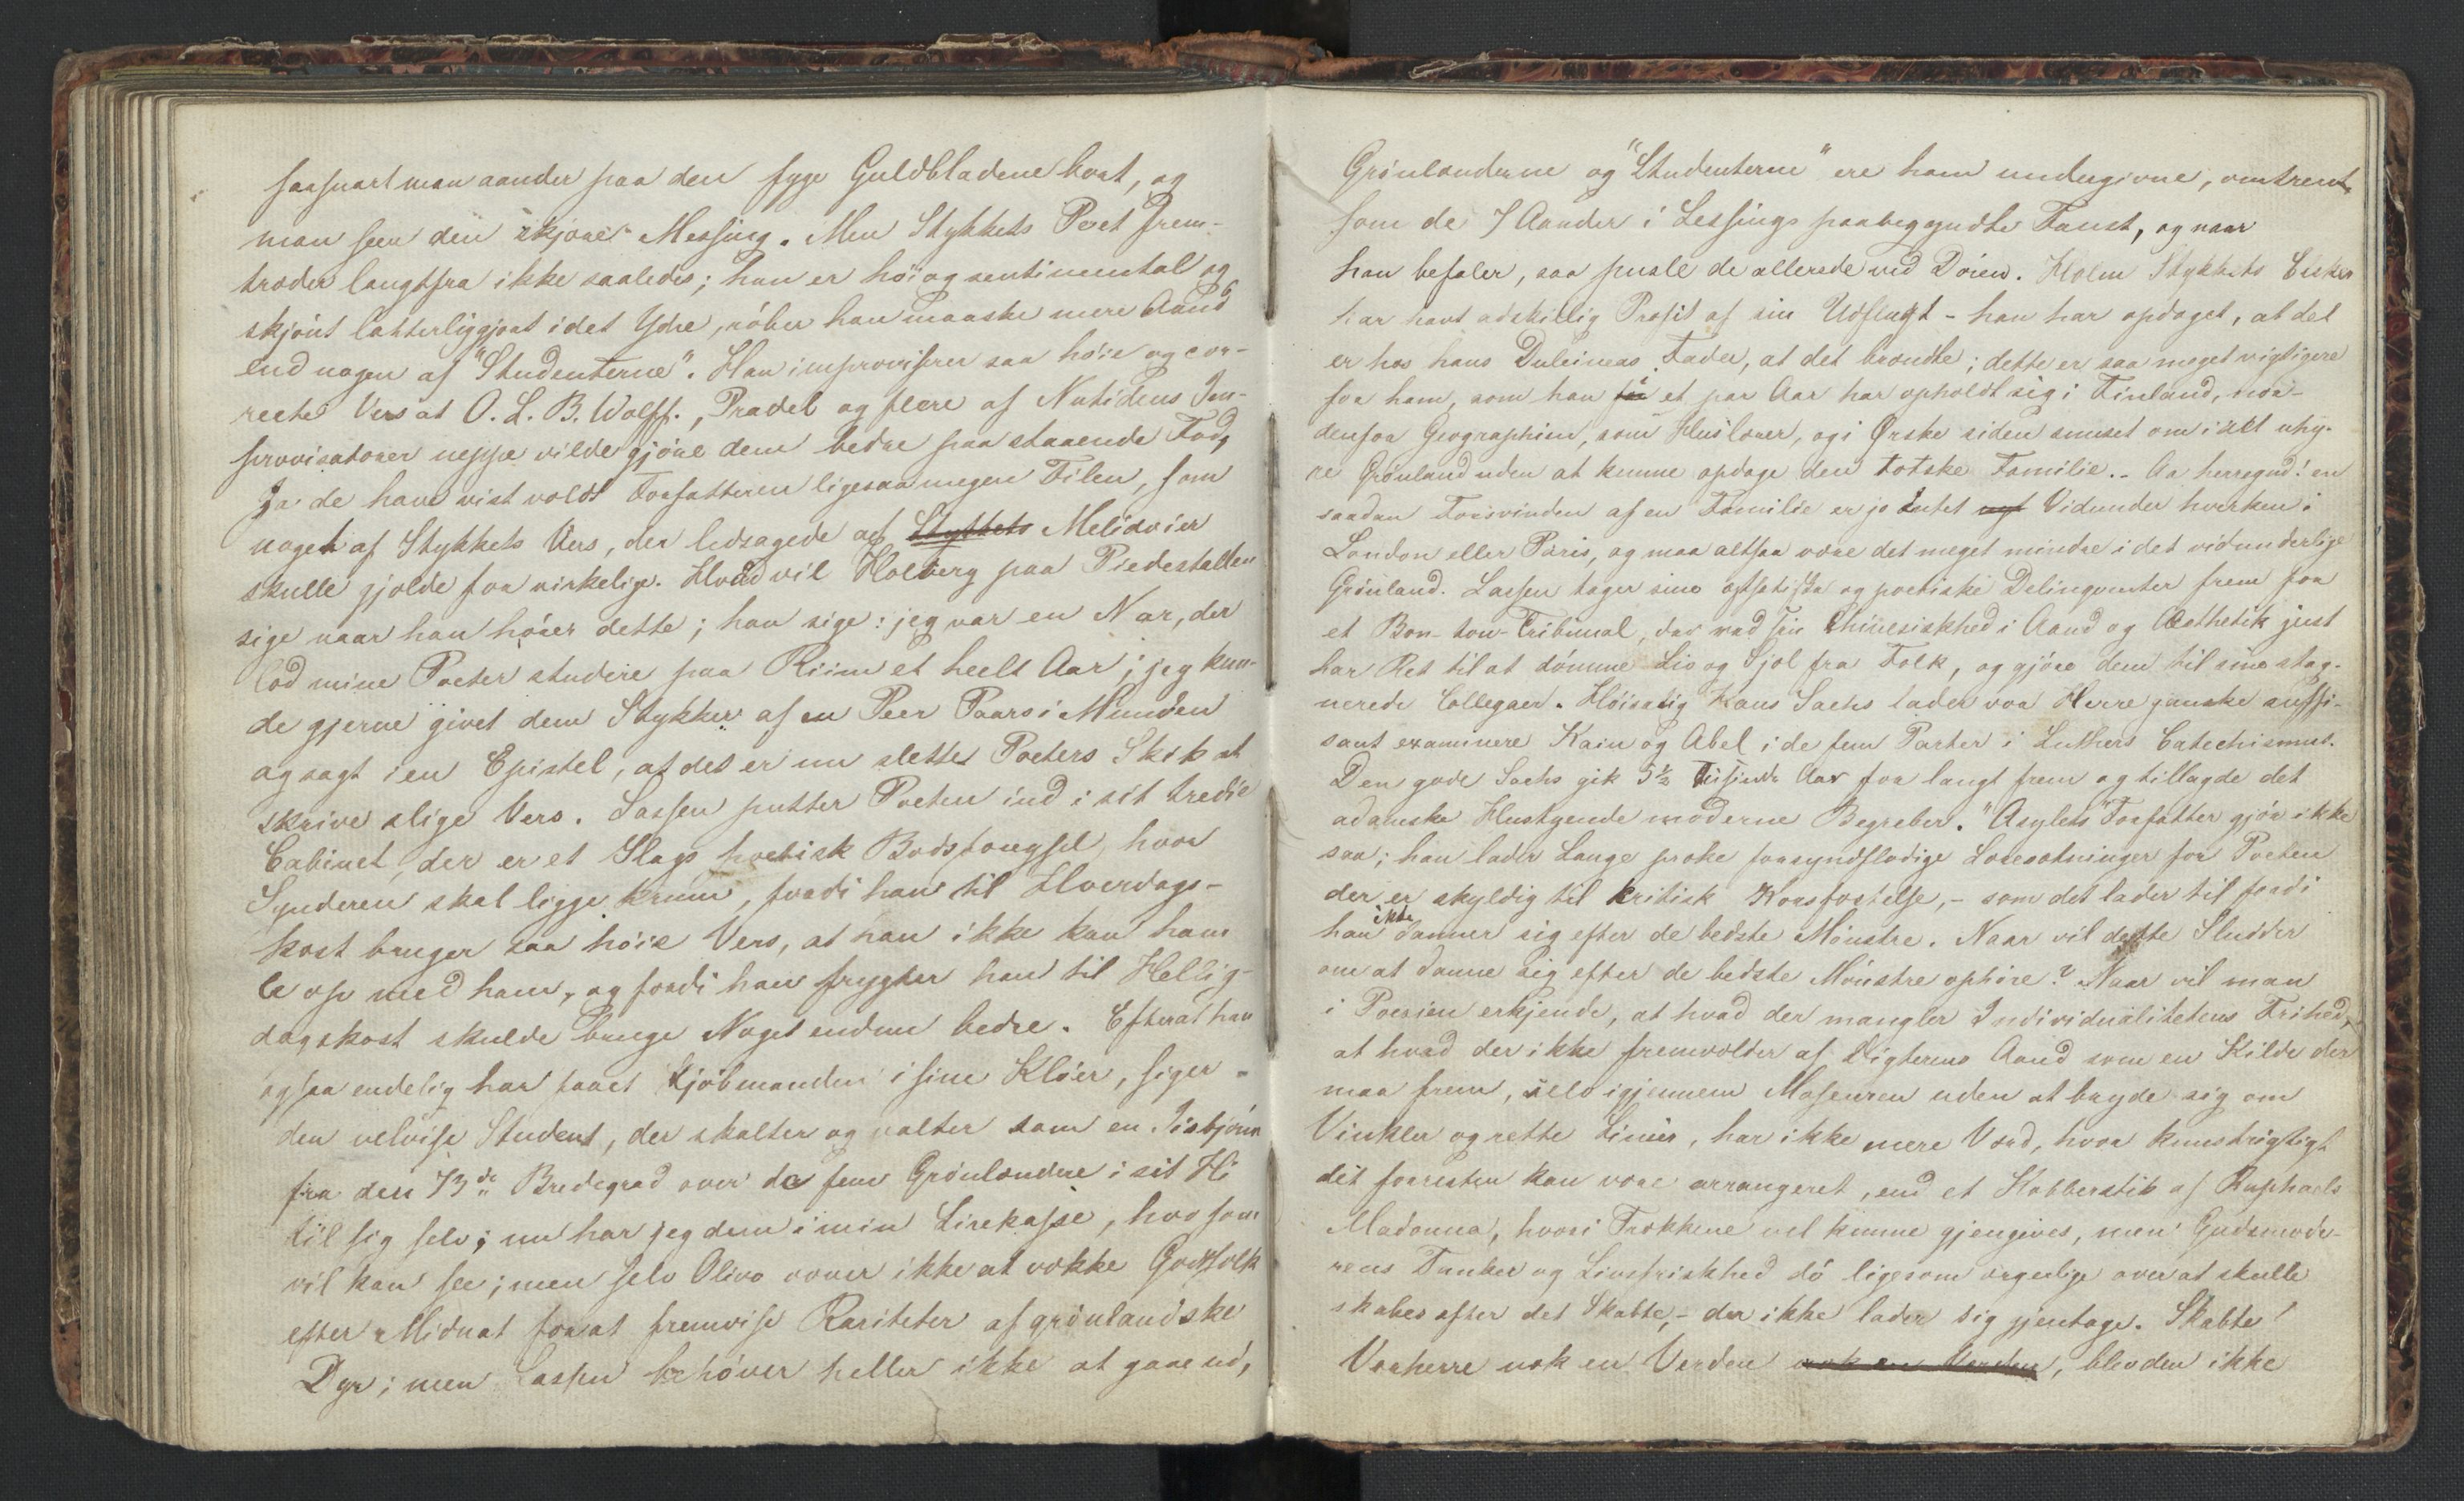 saasnart man aander paa den fyge Guldbladene bort, og
man seer den skjøre Messing. Men Stykkets Poet frem-
træder langtfra ikke saaledes; han er høi og sentimental og
skjønt latterliggjort i det Ydre, røber han maaske mere Aand
end nogen af "Studenterne". Han improviserer saa høie og cor-
recte Vers at O. L. B. Wolff., Pradel og flere af Nutidens Im-
provisatorer neppe vilde gjøre dem bedre paa staaende Fod,
Ja de have vist voldt Forfatteren ligesaamegen Filen, som
noget af Stykkets Vers, der ledsagede af Stykkets Melidvier
skulle gjelde for virkelige. Hvad vil Holberg paa Piedestallen
sige naar han hører dette; han sige: jeg var en Nar, der
lod mine Poeter studere paa Riim et heelt Aar; jeg kun-
de gjerne givet dem Stykker af en Peer Paars i Munden
og sagt i en Epistel, at det er nu slette Poeters Skik at
skrive slige Vers. Lassen putter Poeten ind i sit tredie
Cabinet, der er et Slags poetisk Bodsfængsel, hvor
Synderen skal ligge krum, fordi han til Hverdags-
kost bruger saa høie Vers, at han ikke kan ham
le op med ham, og fordi han frygter han til Hellig-
dagskost skulde bruge Noget endnu bedre. Efterat han
ogsaa endelig har faaet Kjøbmanden i sine Kløer, siger
den velvise Student, der skalter og valter som en Iisbjørn
fra den 73de Bredegrad over de fem Grønlændere i sit Hi
til sig selv; nu har jeg dem i min Lirekasse, hvo som
vil kan see; men selv Olivo vover ikke at vække Godtfolk
efter Midnat for at fremvise Rariteter af grønlandske
Dyr; men Lassen behøver heller ikke at gaae ud,
Grønlænderne og "Studenterne" ere ham undergivne, omtrent,
som de 7 Aander i Lessings paabegyndte Faust, og naar
han befaler, saa pusle de allerede ved Døren. Holm Stykkets Elsker
har havt adskillig Profit af sin Udflugt - han har opdaget, at det
er hos hans Dulcineas Fader, at det brændte; dette er saa meget vigtigere
for ham, som han et par Aar har opholdt sig i Finland, uden-
denfor Geographien, som Huslærer, og i Ørske siden snuset om i alt uhy-
re Grønland uden at kunne opdage den totske Familie.. Aa herregud! en
saadan Forsvinden af en Familie er jo Intet nyt Vidunder hverken i
London eller Paris, og maa altsaa være det meget mindre i det vidunderlige
Grønland. Lassen tager sine opsatsige og poetiske Delinqventer frem for
et Bon-ton-Tribunal, der ved sin Chinesiskhed i Aand og Æsthetik just
har Ret til at dømme Liv og Sjæl fra Folk, og gjøre dem til sine stag-
nerede Collegaer. Høisalig Hans Sachs lader vor Herre ganske suffi-
sant examinere Kain og Abel i de fem Parter i Luthers Catechismus.
Den gode Sachs gik 5½ Tusinde Aar for langt frem og tillagde det
adamske Huusgesinde moderne Begreber. "Asylets" Forfatter gjør ikke
saa; han lader Lange præke forsyndflodige Læresætninger for Poeten
der er skyldig til kritisk Korsfæstelse, - som det lader til fordi
han ikke danner sig efter de bedste Mønstre. Naar vil dette Sludder
om at danne sig efter de bedste Mønstre ophøre? Naar vil man
i Poesien erkjende, at hvad der mangler Individualitetens Frihed,
at hvad der ikke fremvælder af Digterens Aand som en Kilde der
maa frem, selv igjennem Mosuren uden at bryde sig om
Vinkler og rette Linier, har ikke mere Værd, hvor kunstrigtigt
det forresten kan være arrangeret, end et Kobberstik af Raphaels
Madonna, hvori Trækkene vel kunne gjengives, men Gudsmode-
rens Tanker og Livsfriskhed dø ligesom ærgerlige over at skulle
skabes efter det Skabte, - der ikke lader sig gjentage. Skabte
Vorherre nok en Verden nok en Verden, blev den ikke